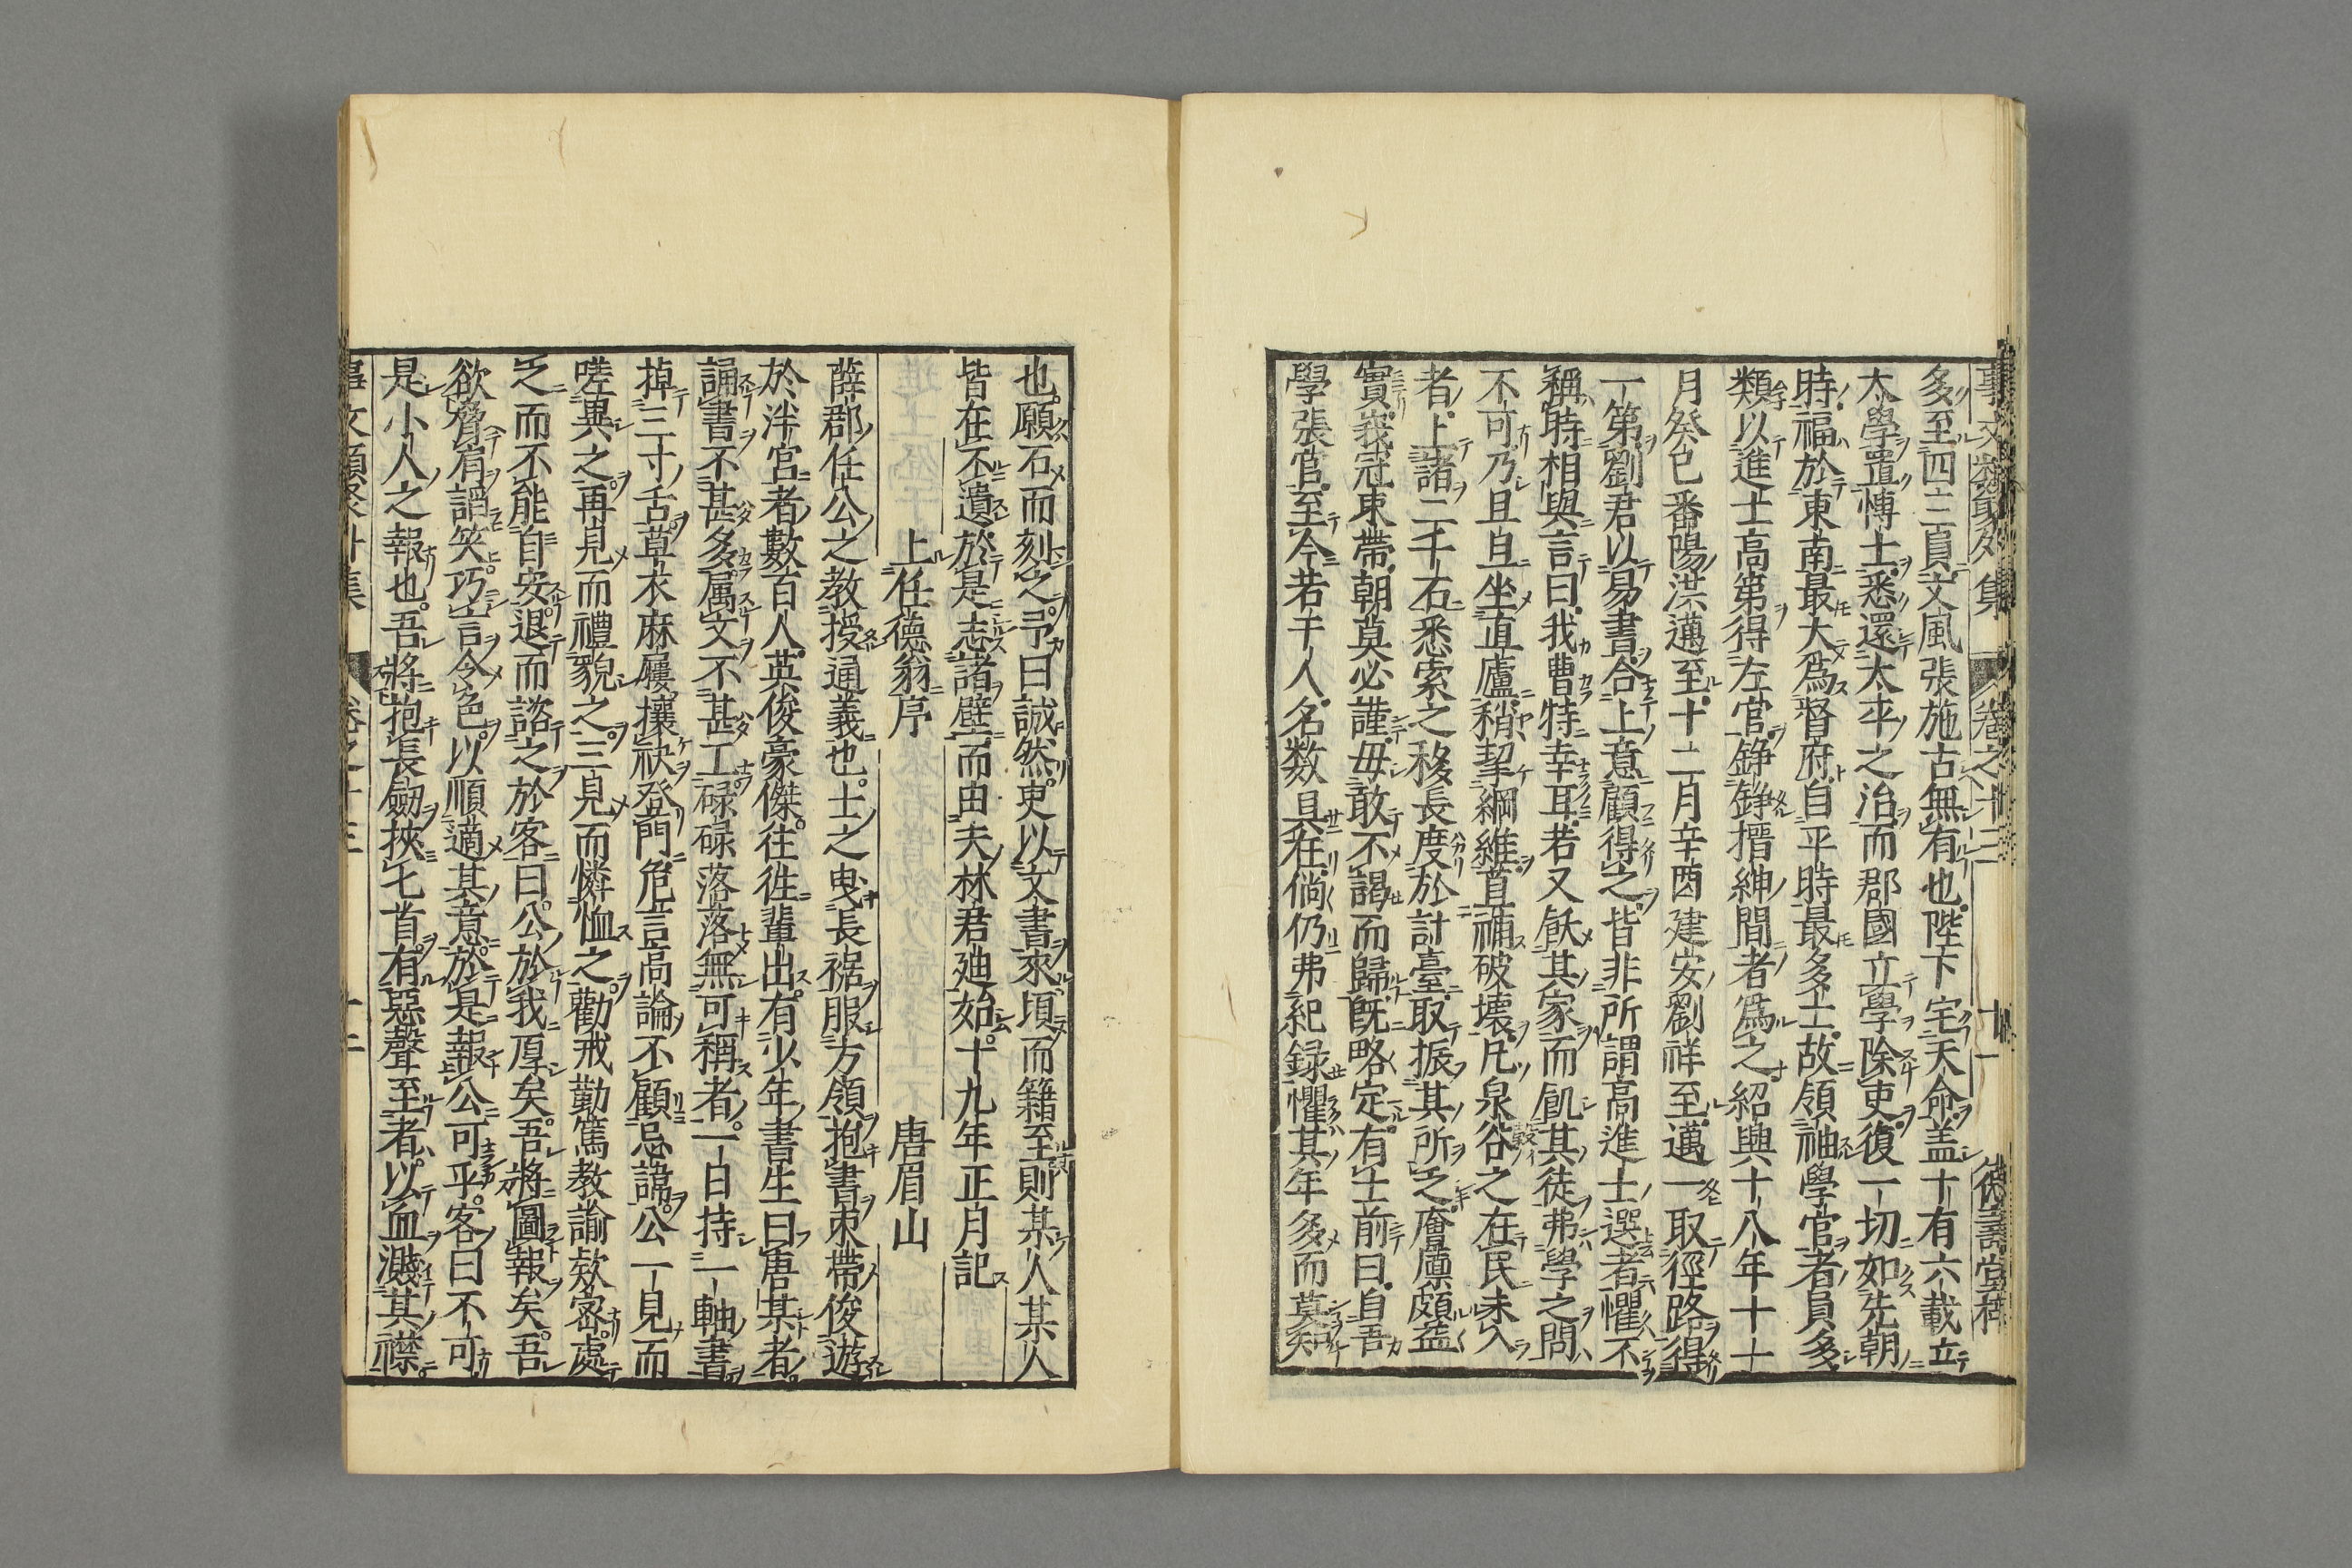 事文類聚外集 卷之十三 十一 德壽堂梓
多至四三員文風張施古無有也陛下宅天命盖十有六載立
太學置愽士悉還太平之治而郡國立學除吏復一切如先朝
時福於東南最大爲督府自平時最多士故領袖學官者員多
類以進士高第得左官錚錚搢紳間者爲之紹興十八年十十
月癸巳番陽洪邁至十二月辛酉建安劉祥至邁一取徑路得
一第劉君以易書合上意顧得之皆非所謂高進士選者懼不
稱時相與言曰我曹特幸耳若又飫其家而飢其徒弗學之問
不可乃且旦坐直廬稍挈綱維葺補破壞凡泉谷之在民未入
者上諸二千石悉索之移長度於計臺取振其所乏廥廪頗益
實峩冠束帶朝莫必謹毋敢不謁而歸旣略定有壬前曰自吾
學張官至今若干人名数具在倘仍弗紀録懼其年多而莫知
也願石而刻之予曰誠然吏以文書來頃而籍至則某人某人
皆在不遺於是志諸壁而由夫林君廸始十九年正月記
上任德翁序 唐眉山
薛郡任公之教授通義也士之曳長裾服方領抱書束帶俊遊
於泮宮者數百人英俊豪傑往徃輩出有少年書生曰唐某者
誦書不甚多属文不甚工碌碌落落無可稱者一日持一軸書
掉三寸舌草衣麻屨攘袂登門危言高論不顧忌諱公一見而
嗟異之再見而禮貌之三見而憐恤之勸戒勤篤教諭欵密處
之而不能自安退而諮之於客曰公於我厚矣吾將圖報矣吾
欲脅肩謟笑巧言令色以順適其意於是報公可乎客曰不可
是小人之報也吾將抱長劒挾匕首有惡聲至者以血濺其襟
事文類聚外集 卷之十三 十二